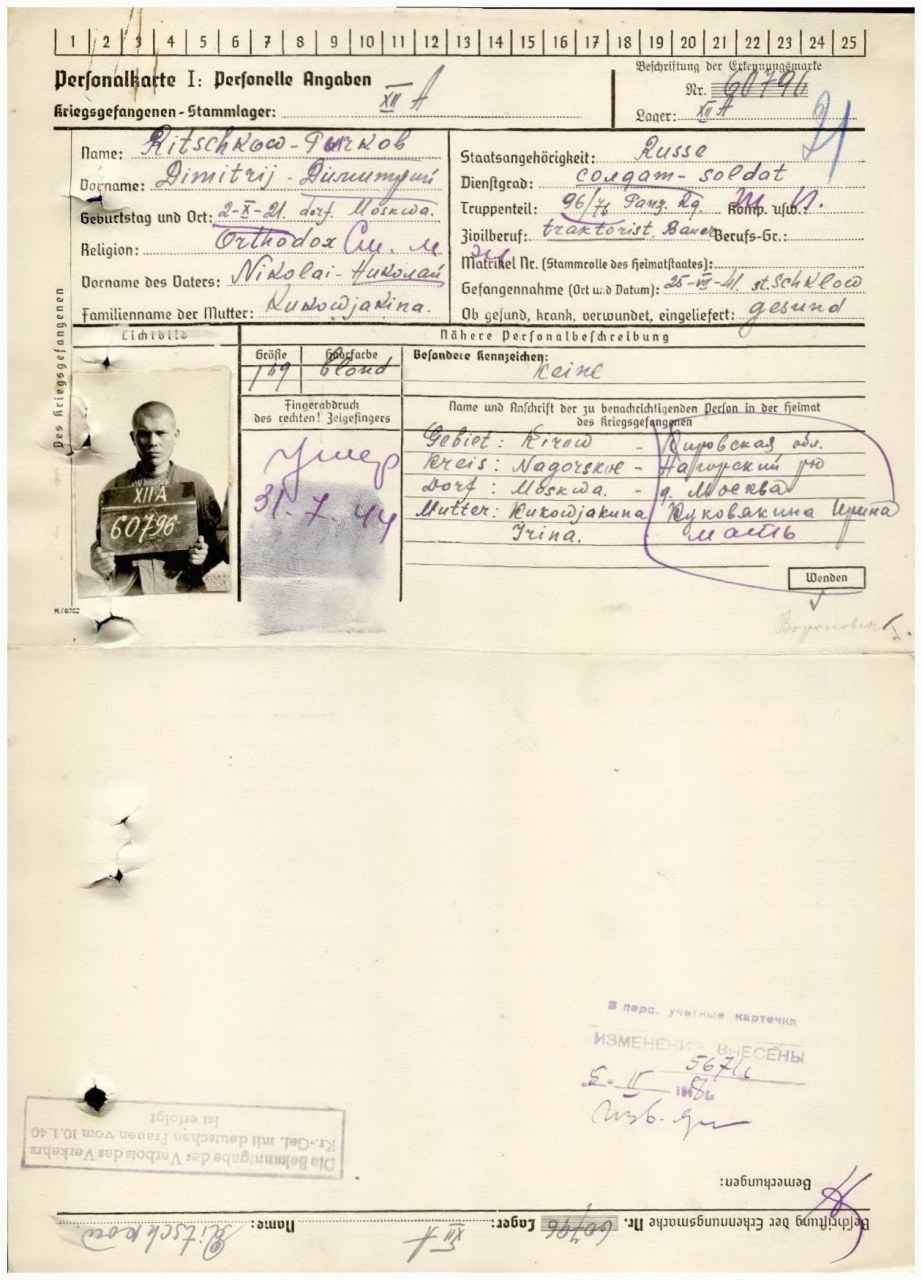 1 2 3 4 5 6 7 8 9 10 11 12 13 14 15 16 17 18 19 20 21 22 23 24 25
Personalkarte I: Personelle Angaben
Kriegsgefangenen-Stammlager: XII A
Beschriftung der Erkennungsmarke
Nr. 60796
Lager: XII A
Des Kriegsgefangenen
Name: Ritschkow - Рычков
Vorname: Dimitrij - Димитрий
Geburtstag und Ort: 2-X-21. dorf. Moskwa.
Religion: Orthodox См. м
Vorname des Vaters: Nikolai - Николай
Familienname der Mutter: Kukowjakina.
Staatsangehörigkeit: Russe
Dienstgrad: солдат - soldat
Truppenteil: 96/76 Panz. Rg. Komp. usw.:
Zivilberuf: traktorist, Bauer Berufs-Gr.:
Matrikel Nr. (Stammrolle des Heimatstaates):
Gefangennahme (Ort und Datum): 25-VII-41. st. Schklow
Ob gesund, krank, verwundet, eingeliefert: gesund
Lichtbild
Nähere Personalbeschreibung
Größe Haarfarbe Besondere Kennzeichen:
169 blond keine
Fingerabdruck
des rechten! Zeigefingers
Умер
31.7.44
XII A
60796
Name und Anschrift der zu benachrichtigenden Person in der Heimat
des Kriegsgefangenen
Gebiet: Kirow - Кировская обл.
Kreis: Nagorskoe - Нагорский рю
Dorf: Moskwa. - д. Москва
Mutter: Kukowjakina Куковякина Ирина
Irina. мать
Wenden
K/0702
В перс. учетные карточки
ИЗМЕНЕНИЯ ВНЕСЕНЫ
Die Bekanntgabe des Verbots des Verkehrs
Kr.-Gef. mit deutschen Frauen vom 10.1.40
ist erfolgt
Bemerkungen:
Beschriftung der Erkennungsmarke Nr. 60796 Lager: XII A Name: Ritschkow